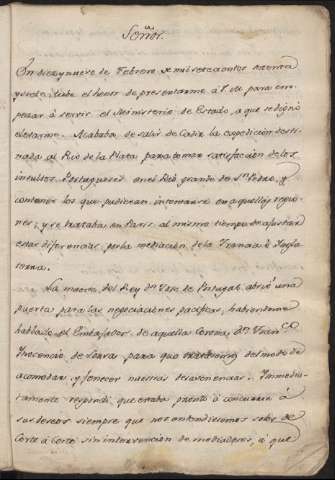 Señor.
En diez y nueve de Febrero de mil setecientos setenta
y siete, tube el honor de presentarme à V. M. para em-
pezar à servir el Ministerio de Estado, a que se dignó
elevarme. Acababa de salir de Cadiz la expedicion desti-
nada al Rio de la Plata para tomar satisfacion de los
insultos Portugueses en el Rio grande de Sn. Pedro, y
contener los que pudiesen intentarse en aquellas regio-
nes; y se trataba en Paris al mismo tiempo de ajustar
estas diferencias por la mediacion de la Francia è Ingla
terra.
La muerte del Rey Dn. Jose de Portugal abrió una
puerta para las negociaciones pacificas, habiendome
hablado el Embajador de aquella Corona Dn. Franco.
Inocencio de Souza para que del modo de
acomodar, y fenecer nuestras desavenencias. Inmedia-
tamente respondi que estaba pronto à concurrir à
sus deseos siempre que nos entendiesemos solos de
Corte à Corte sin intervencion de mediadores, à que